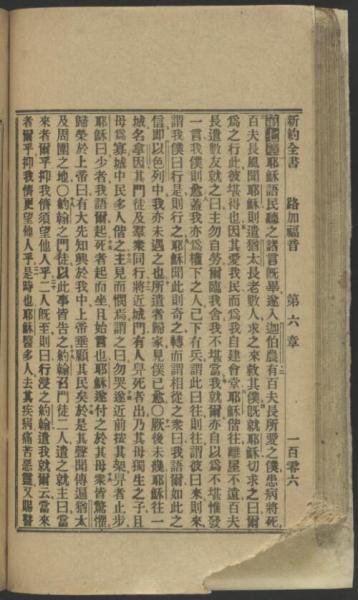 新約全書 路加福音 第六章 一百零六
耶穌語民聽之諸言旣畢遂入迦伯農有百夫長所愛之僕患病將死
百夫長風聞耶穌則遣猶太長老數人求之來救其僕旣就耶穌切求之曰爾
爲之行此彼堪得也因其愛我民而爲我自建會堂耶穌偕往離屋不遠百夫
長遣數友就之曰主勿自勞爾臨我舍我不堪當我就爾亦自以爲不堪惟發
一言我僕則愈蓋我亦爲權下之人己下有兵謂此曰往則往謂彼曰來則來
謂我僕曰行是則行之耶穌聞此則奇之轉而謂相從之衆曰我語爾如此之
信卽以色列中我亦未遇之也所遣者歸家見僕已愈〇厥後未幾耶穌往一
城名拿因其門徒及羣衆同行將近城門有人舁死者出乃其母獨生之子且
母爲寡城中民多人偕之主見而憫焉謂之曰勿哭遂近前按其架舁者止步
耶穌曰少者我語爾起死者起而坐且始言也耶穌遂付之於其母衆皆驚懼
歸榮於上帝曰有大先知興於我中上帝垂顧其民矣於是其聲聞傳遍猶太
及周圍之地〇約翰之門徒以此事皆告之約翰召門徒二人遣之就主曰當
來者爾乎抑我儕須望他人乎二人旣至則曰行浸之約翰遣我就爾云當來
者爾乎抑我儕更望他人乎是時也耶穌醫多人去其疾病痛苦惡靈又賜瞽